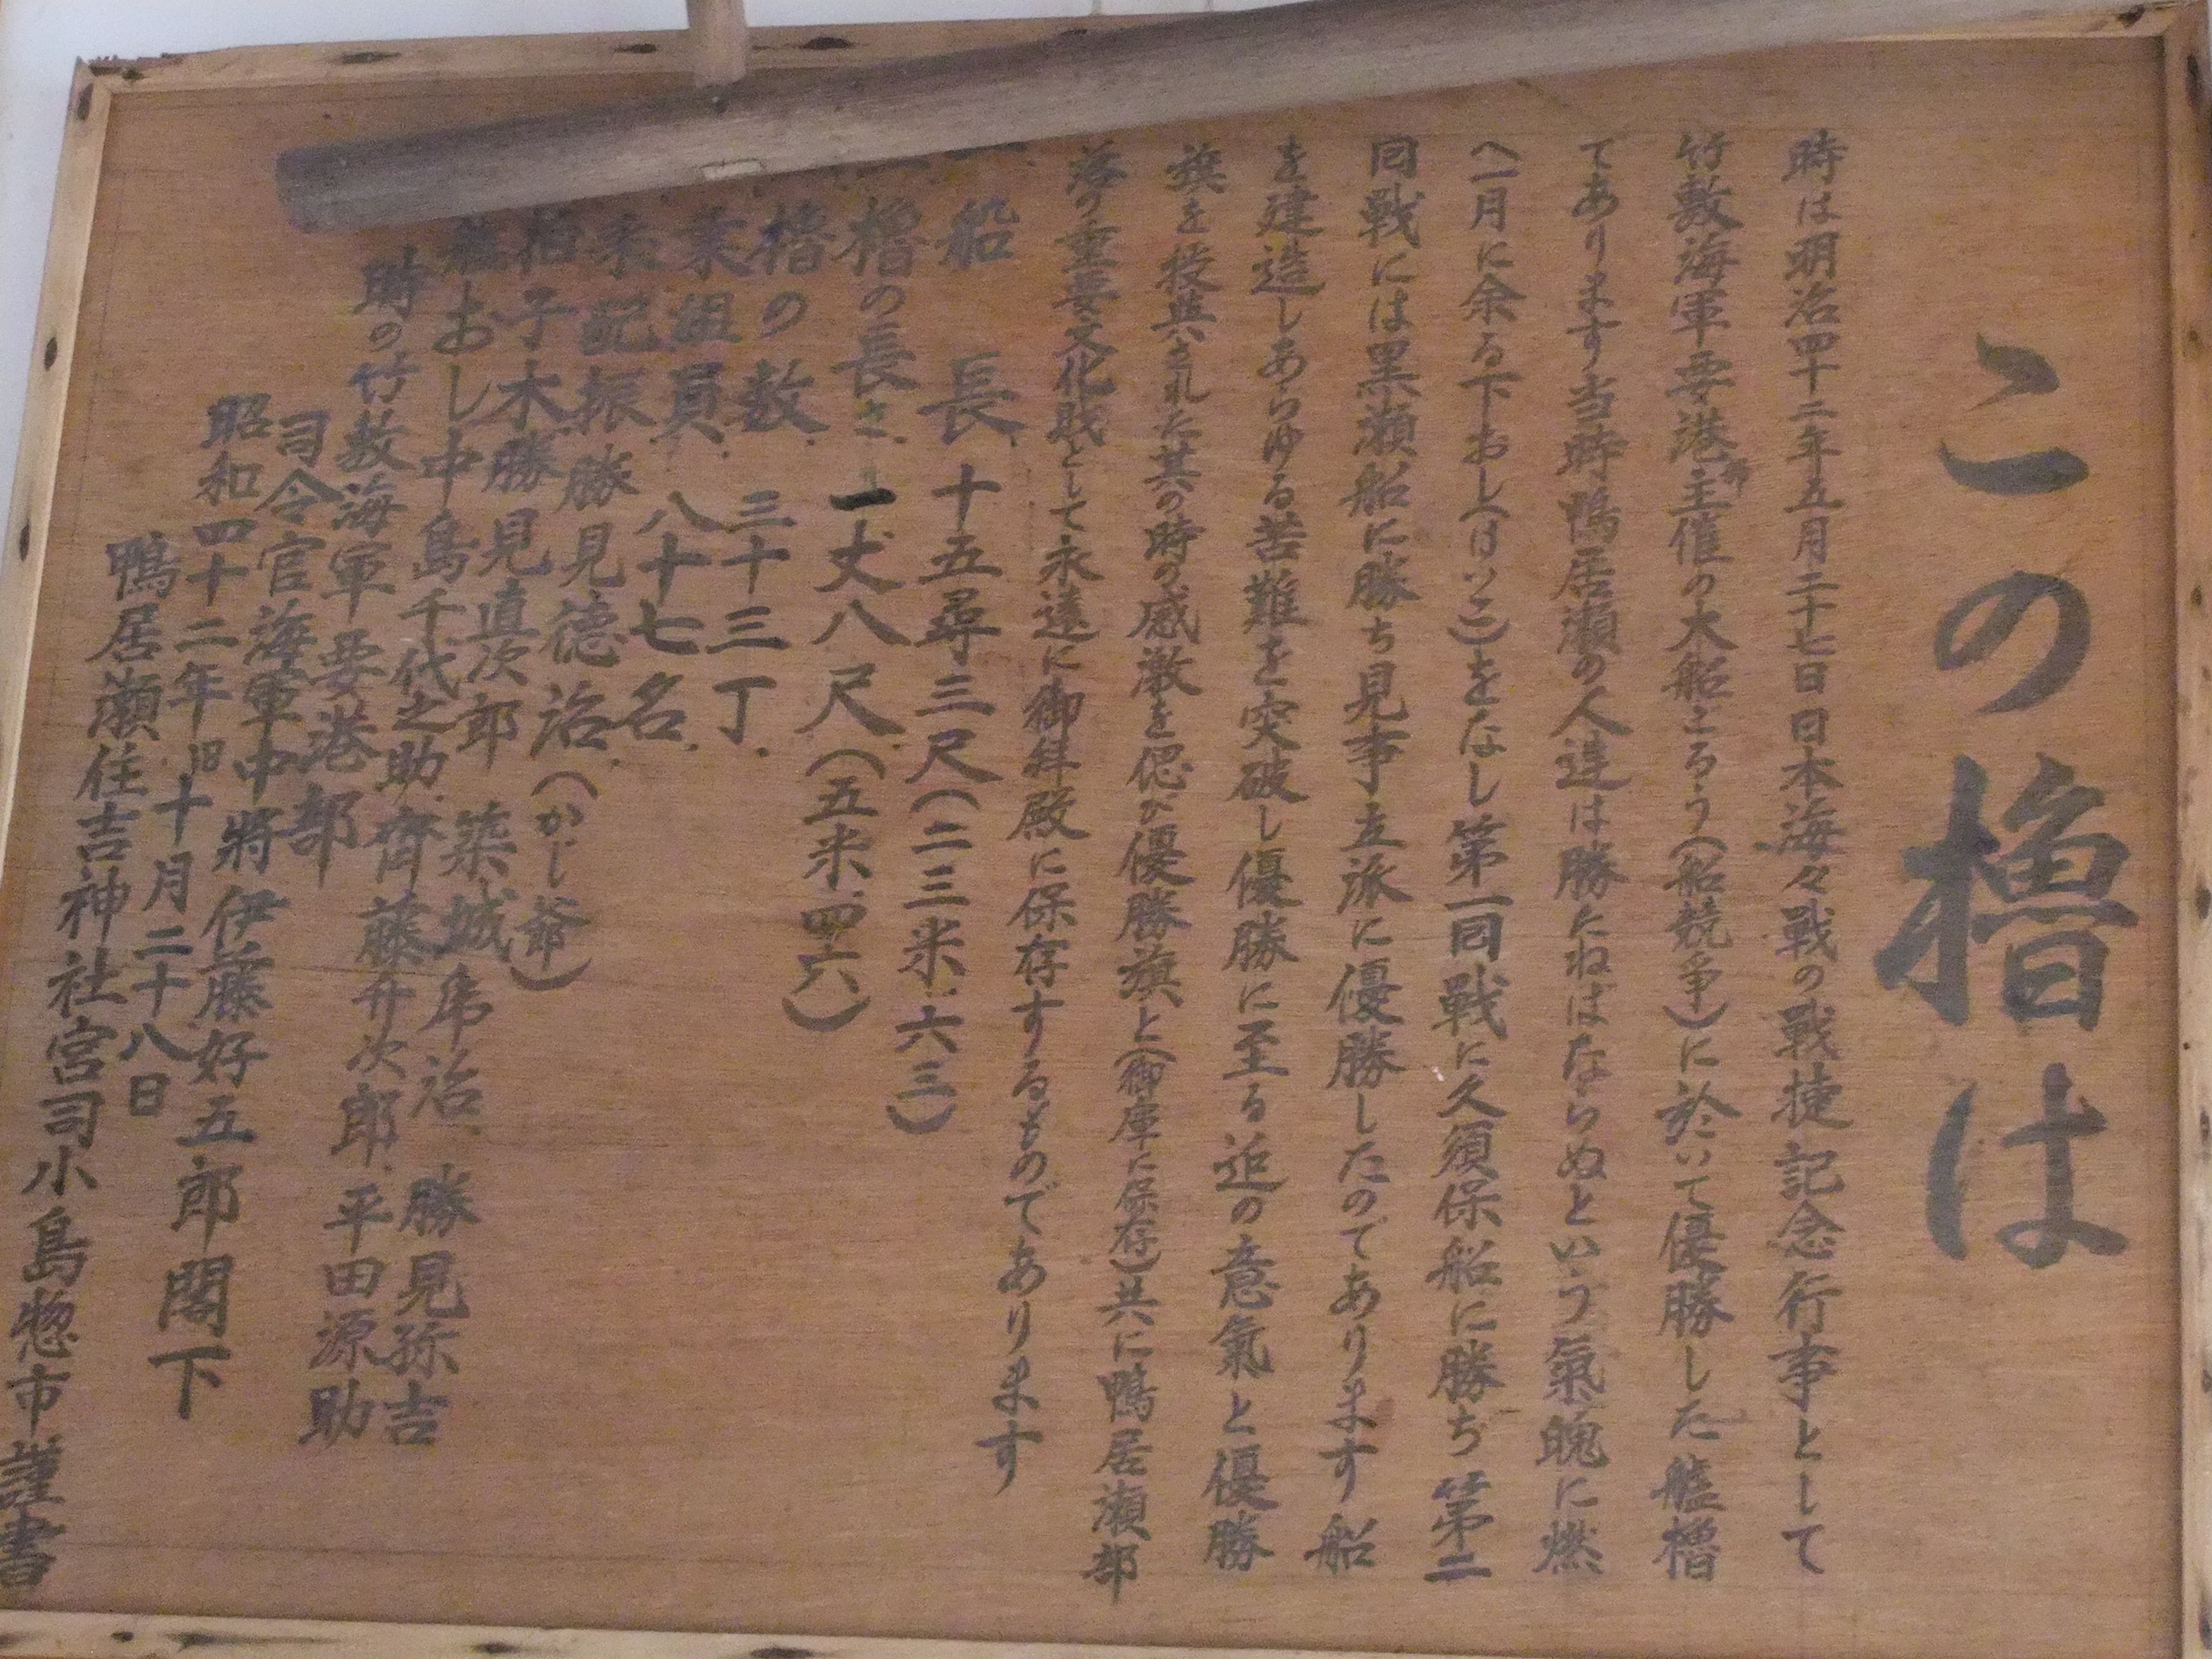 この櫓は
時は明治四十二年五月二十七日日本海々戦の戦捷記念行事として
竹敷海軍要港部主催の大船ころう(船競争)に於いて優勝した艫櫓
であります当時鴨居瀬の人達は勝たねばならぬという氣魄に燃
へ一月に余る下おし(はこ)をなし第一回戦に久須保船に勝ち第二
回戦には黒瀬船に勝ち見事立派に優勝したのであります船
を建造しあらゆる苦難を突破し優勝に至る迄の意氣と優勝
旗を授與された其の時の感激を偲び優勝旗と(御庫に保存)共に鴨居瀬部
落の重要文化財として永遠に御拝殿に保存するものであります
船長 十五尋三尺(二三米.六三)
櫓の長さ 一丈八尺(五米.四六)
櫓の数 三十三丁
乗組員 八十七名
采配振 勝見徳治(かじ爺)
拍子木 勝見直次郎 築城乕治 勝見弥吉
おし 中島千代之助 齊藤弁次郎 平田源助
時の竹敷海軍要港部
司令官海軍中將伊藤好五郎閣下
昭和四十二年旧十月二十八日
鴨居瀬住吉神社宮司小島惣市謹書